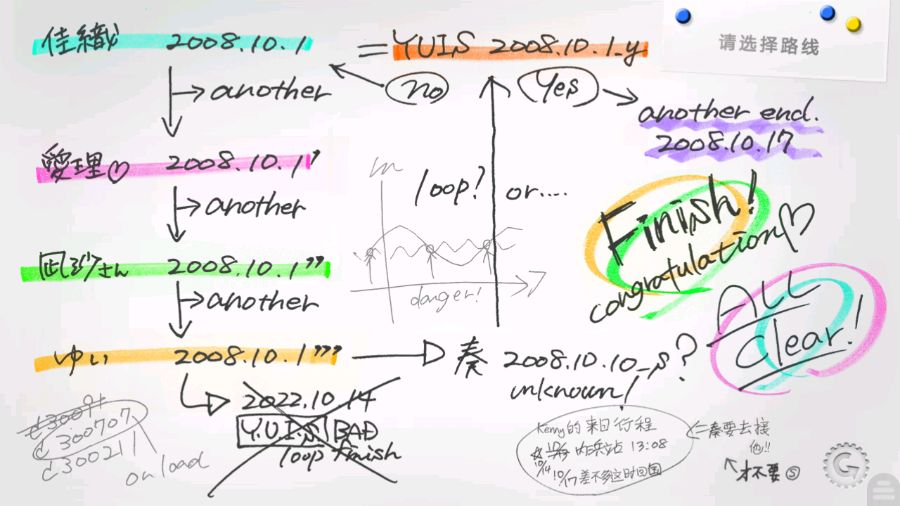 请选择路线
佳織 2008.10.1 = YUIS 2008.10.1_y.
another
no
Yes
another end.
2008.10.17
愛理♡ 2008.10.1'
another
m
loop? or....
danger!
Finish!
congratulation♡
凪沙さん 2008.10.1''
another
ALL
Clear!
ゆい 2008.10.1''''
奏 2008.10.10_s?
unknown!
2022.10.14
Y.U.I.S BAD
loop finish
c300707
c300211
onload
Kenny的来日行程
昨兵站 13:08
10/14
10/17差不多这时回国
⇐奏要去接
他!!
才不要
G